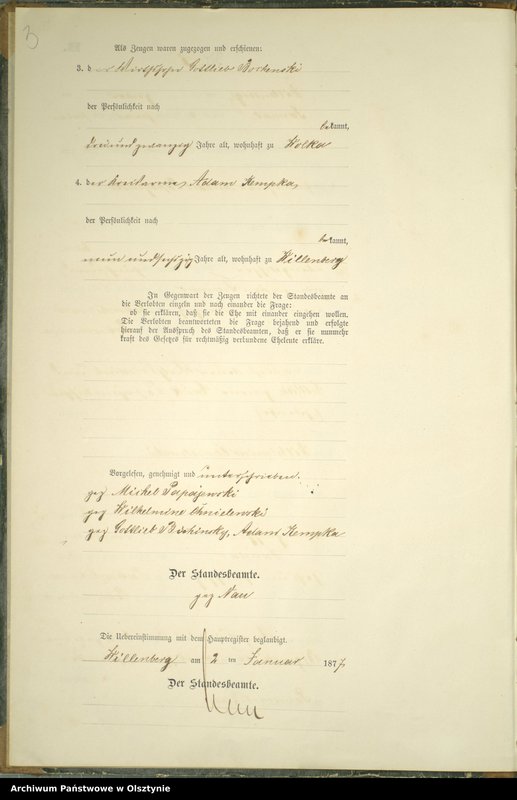 3
Als Zeugen waren zugezogen und erschienen:
3. der Gottlieb
der Persönlichkeit nach
bekannt,
dreiundzwanzig Jahre alt, wohnhaft zu Wolka
4. der Adam Kempka,
der Persönlichkeit nach
bekannt,
neun undsechszig Jahre alt, wohnhaft zu Willenberg
In Gegenwart der Zeugen richtete der Standesbeamte an
die Verlobten einzeln und nach einander die Frage:
ob sie erklären, daß sie die Ehe mit einander eingehen wollen.
Die Verlobten beantworteten die Frage bejahend und erfolgte
hierauf der Ausspruch des Standesbeamten, daß er sie nunmehr
kraft des Gesetzes für rechtmäßig verbundene Eheleute erkläre.
Vorgelesen, genehmigt und unterschrieben.
gez Michel Papajewski
gez Wilhelmine Chmielewski
gez Gottlieb Adam Kempka
Der Standesbeamte.
gez Nau
Die Uebereinstimmung mit dem Hauptregister beglaubigt.
Willenberg am 2 ten Januar 1877
Der Standesbeamte.
Nau
Archiwum Państwowe w Olsztynie